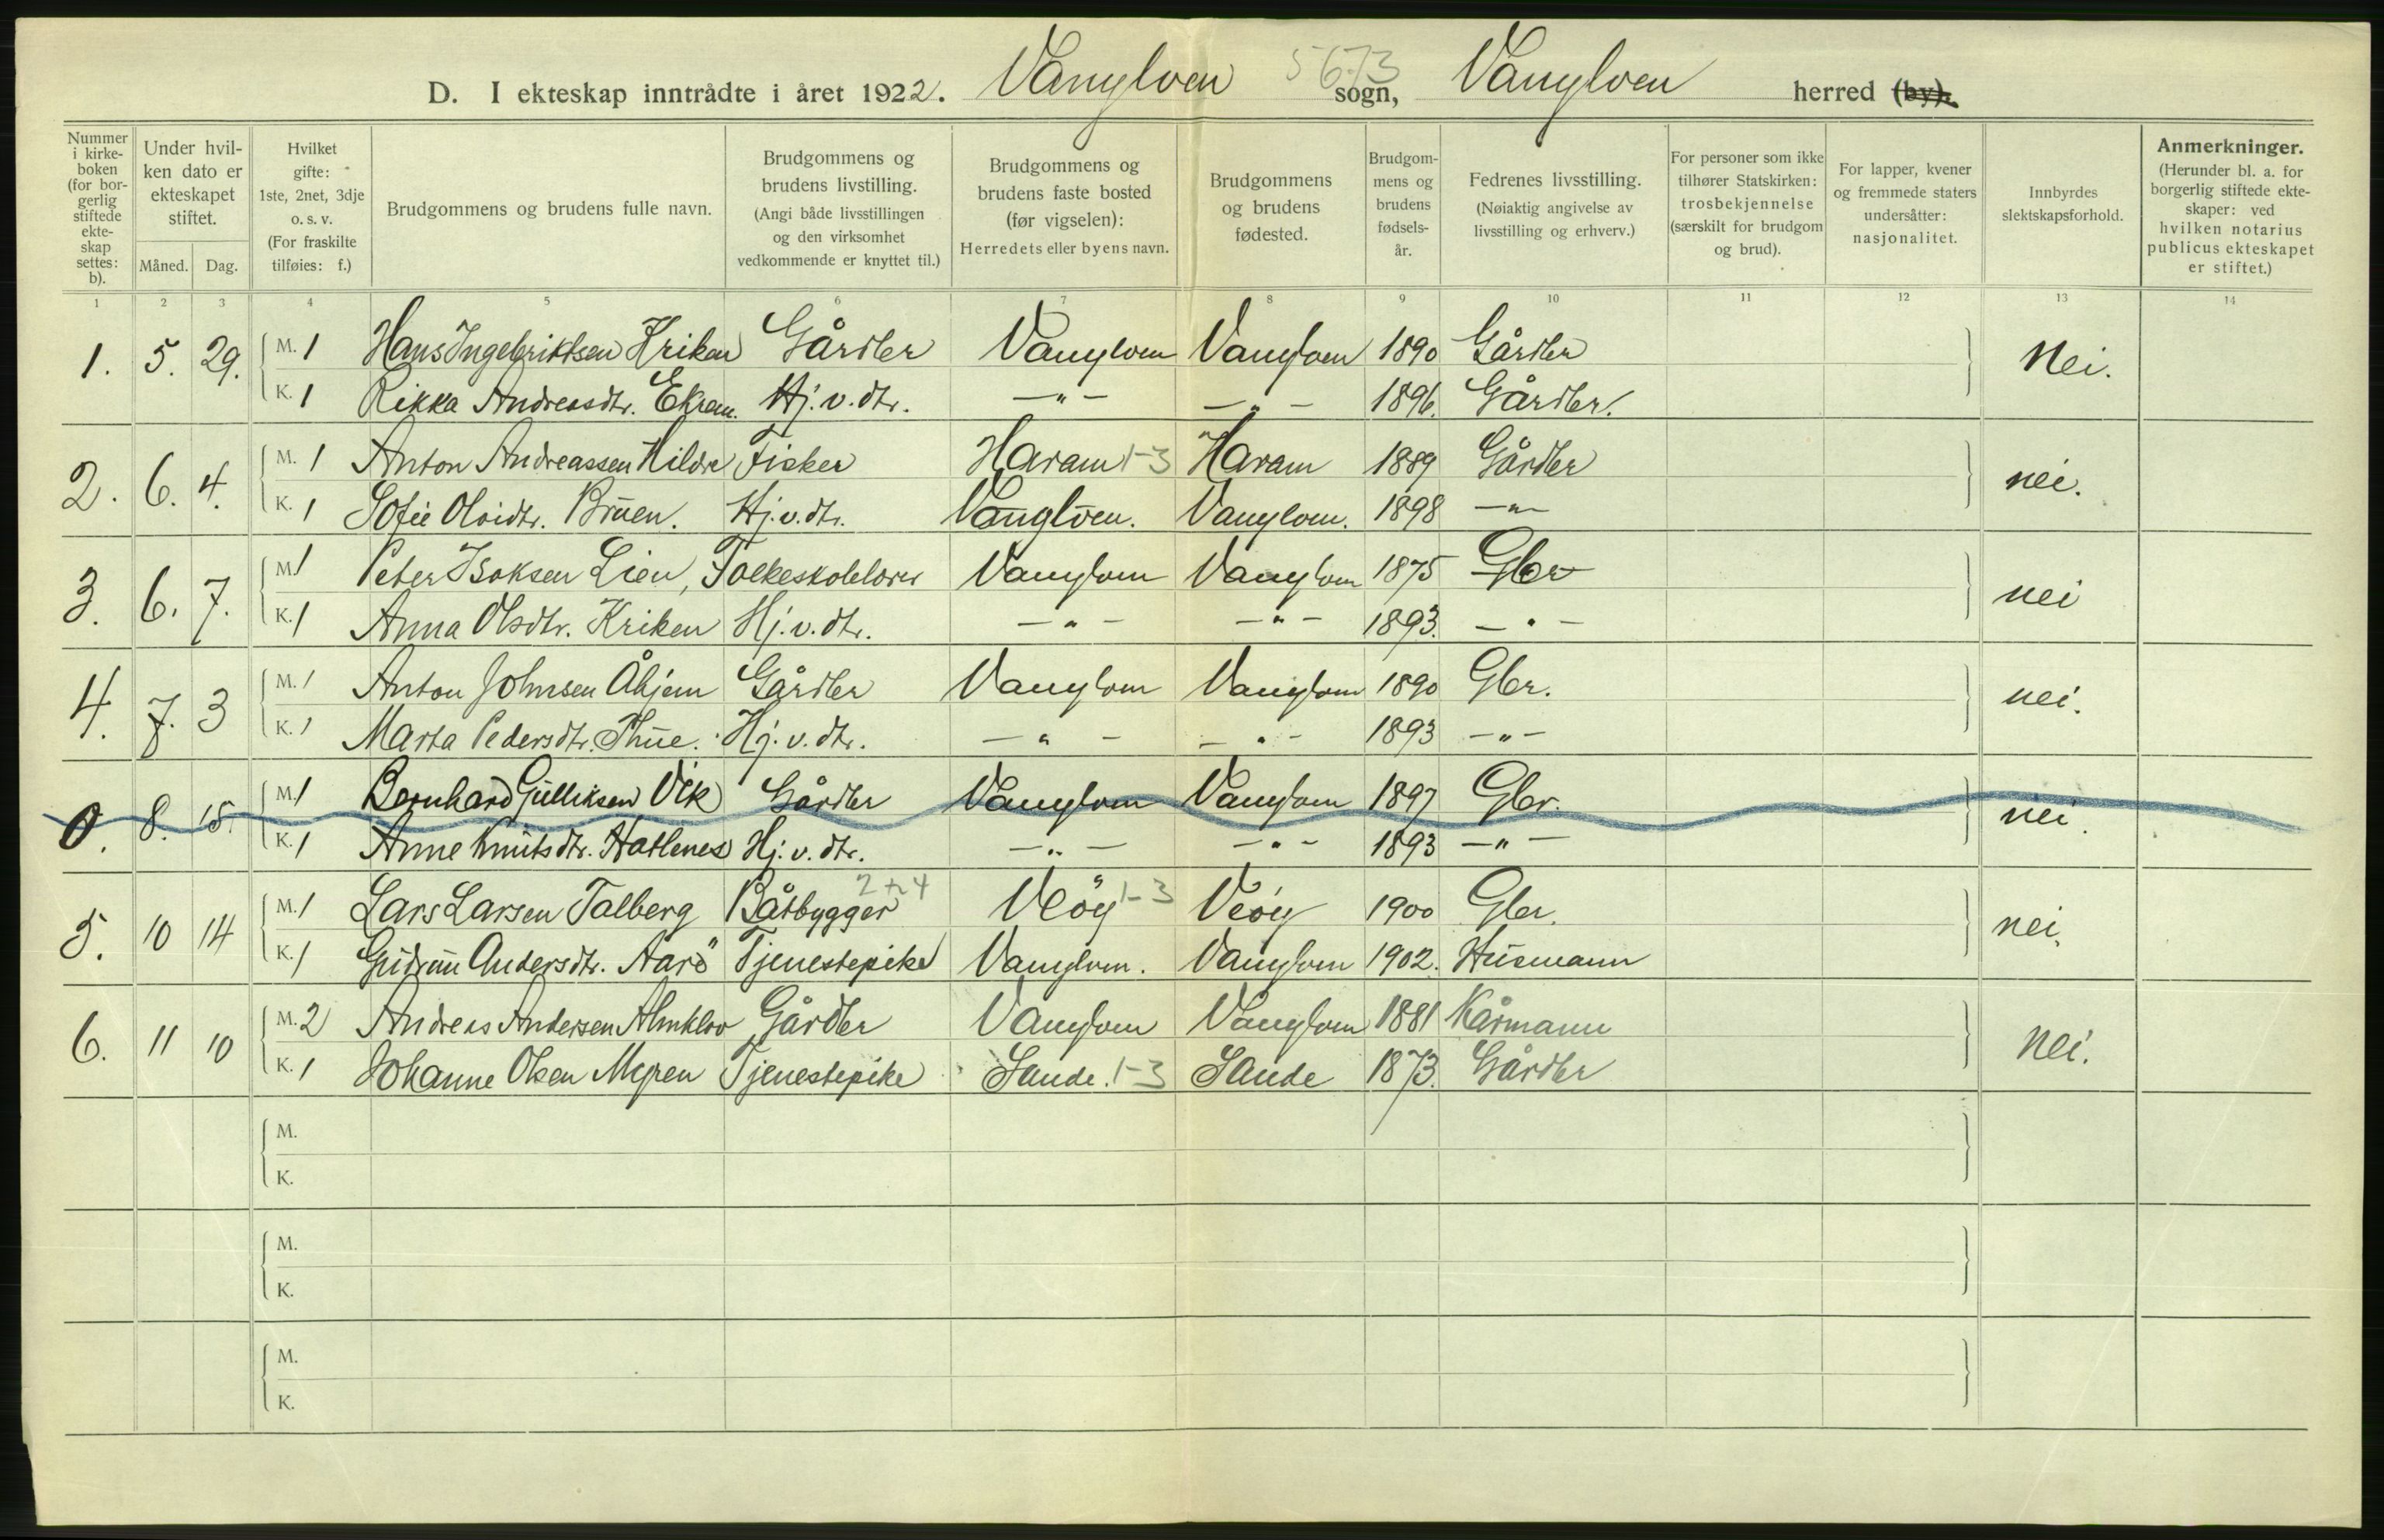 D. I ekteskap inntrådte i året 1922. Vanylven sogn, Vanylven herred (by).
5673
Nummer i kirkeboken (for borgerlig stiftede ekteskap settes: b).
Under hvilken dato er ekteskapet stiftet.
Måned. Dag.
Hvilket gifte: 1ste, 2net, 3dje o. s. v. (For fraskilte tilføies: f.)
Brudgommens og brudens fulle navn.
Brudgommens og brudens livstilling. (Angi både livsstillingen og den virksomhet vedkommende er knyttet til.)
Brudgommens og brudens faste bosted (før vigselen): Herredets eller byens navn.
Brudgommens og brudens fødested.
Brudgommens og brudens fødselsår.
Fedrenes livsstilling. (Nøiaktig angivelse av livsstilling og erhverv.)
For personer som ikke tilhører Statskirken: trosbekjennelse (særskilt for brudgom og brud).
For lapper, kvener og fremmede staters undersåtter: nasjonalitet.
Innbyrdes slektskapsforhold.
Anmerkninger. (Herunder bl. a. for borgerlig stiftede ekteskaper: ved hvilken notarius publicus ekteskapet er stiftet.)
1 2 3 4 5 6 7 8 9 10 11 12 13 14
1. 5. 29. M. 1 Hans Ingebriktsen Kriken Gårdbr Vanylven Vanylven 1890 Gårdbr Nei.
K. 1 Rikka Andreasdtr. Ekrem. Hj. v. dtr. —"— —"— 1896. Gårdbr.
2. 6. 4. M. 1 Anton Andreassen Hildre Fisker Haram 1-3 Haram 1889 Gårdbr nei.
K. 1 Sofie Olvidtr. Brūen. Hj. v. dtr. Vanylven. Vanylven. 1898 —"—
3. 6. 7. M. 1 Peter Isaksen Lien, Folkeskolelærer Vanylven Vanylven 1875 Gbr nei
K. 1 Anna Olsdtr. Kriken Hj. v. dtr. —"— —"— 1893. —"—
4. 7. 3 M. 1 Anton Johnsen Åhjem Gårdbr Vanylven Vanylven 1890 Gbr. nei.
K. 1 Marta Pedersdtr. Thūe. Hj. v. dtr. —"— —"— 1893 —"—
0. 8. 15. M. 1 Bernhard Gūlliksen Vik Gårdbr Vanylven Vanylven 1897 Gbr. nei.
K. 1 Anne Knūtsdtr. Hatlenes Hj. v. dtr. —"— —"— 1893 —"—
5. 10 14 M. 1 Lars Larsen Talberg Båtbygger 2 4 Veöy 1-3 Veöy 1900 Gbr. nei.
K. 1 Gūdrūn Andersdtr. Aarö Tjenestepike Vanylven. Vanylven 1902. Hūsmann
6. 11 10 M. 2 Andreas Andersen Almklov Gårdbr Vanylven Vanylven 1881 Kårmann Nei.
K. 1 Johanne Olsen Myren Tjenestepike Sande. 1-3 Sande 1873. Gårdbr
M.
K.
M.
K.
M.
K.